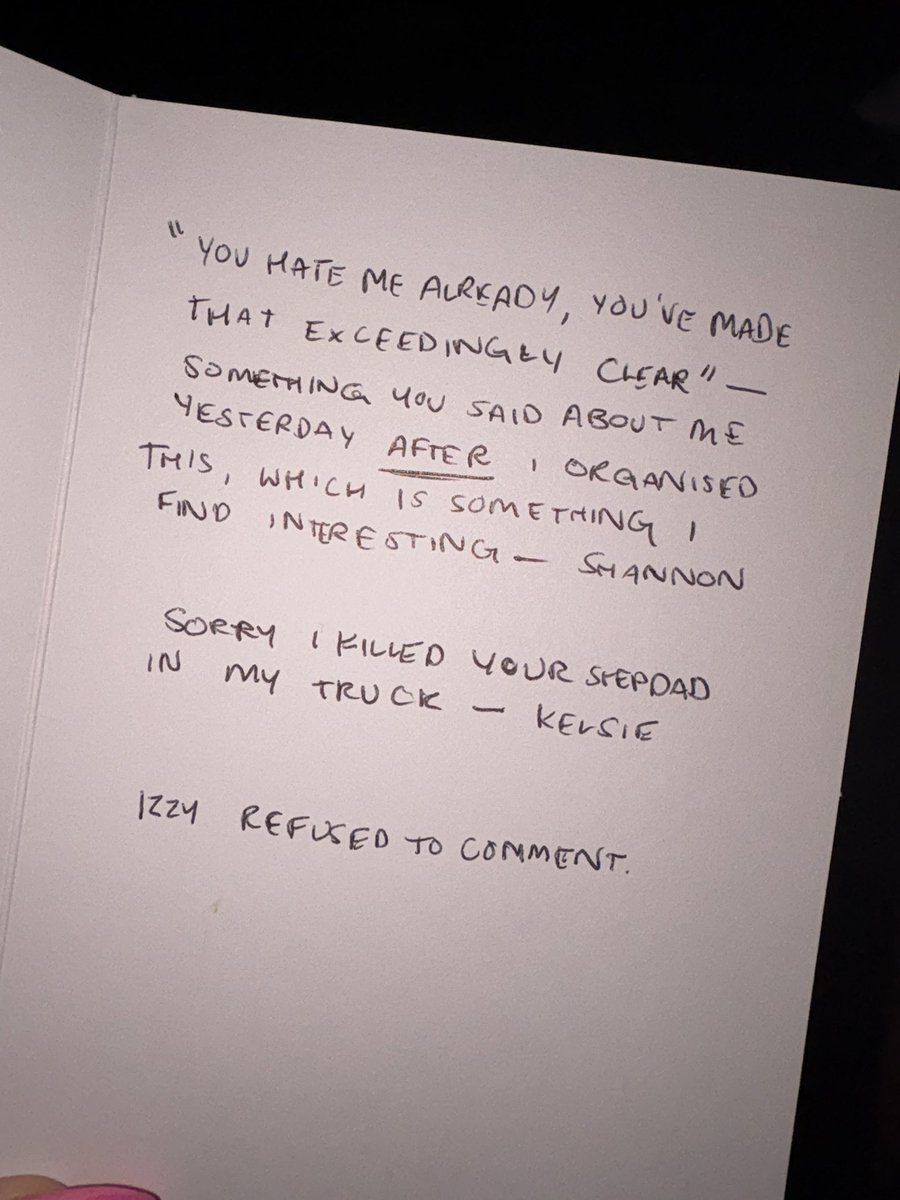 "YOU HATE ME ALREADY, YOU'VE MADE
THAT EXCEEDINGLY CLEAR" —
SOMETHING YOU SAID ABOUT ME
YESTERDAY AFTER I ORGANISED
THIS, WHICH IS SOMETHING I
FIND INTERESTING — SHANNON
SORRY I KILLED YOUR STEPDAD
IN MY TRUCK — KELSIE
IZZY REFUSED TO COMMENT.